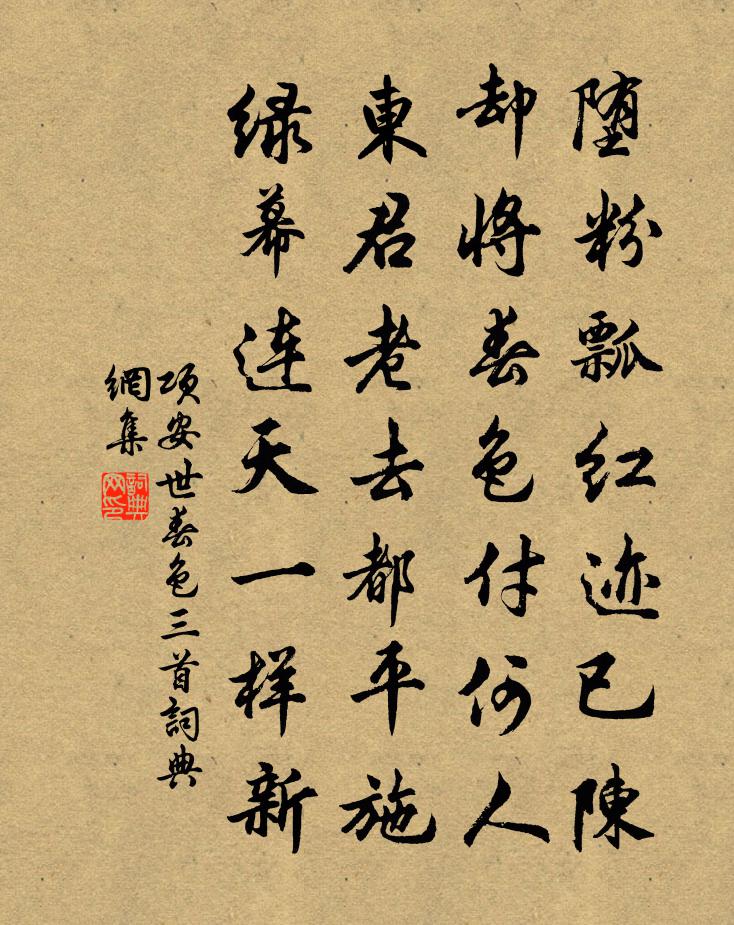 堕粉瓢红迹已陳
却将春色付何人
東君老去都平施
绿幕连天一样新
项安世春色三首詞典
網集
詞典网印